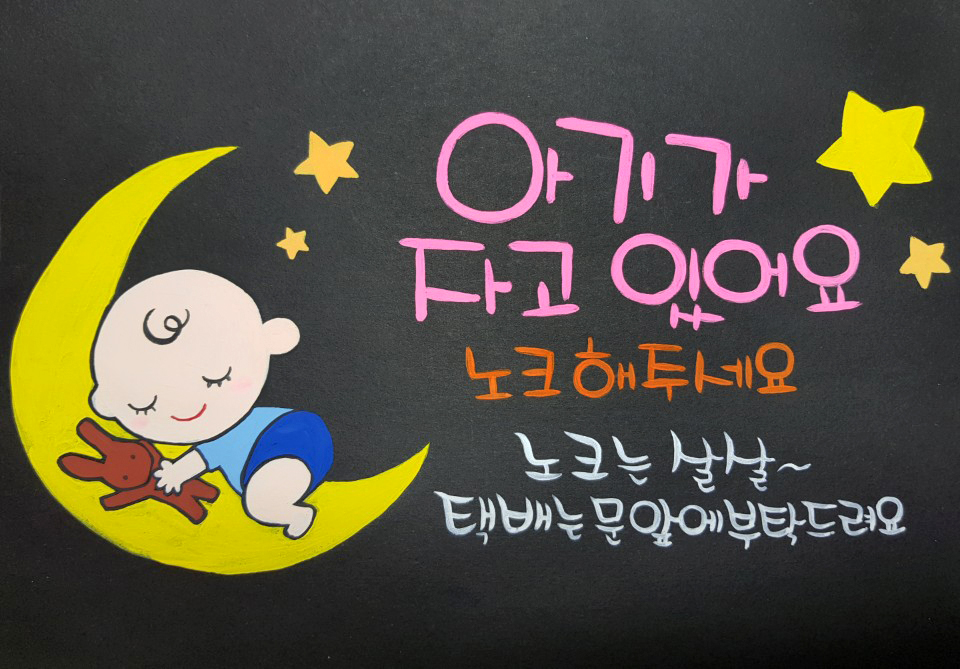 아기가
자고 있어요
노크해주세요
노크는 살살~
택배는 문앞에 부탁드려요